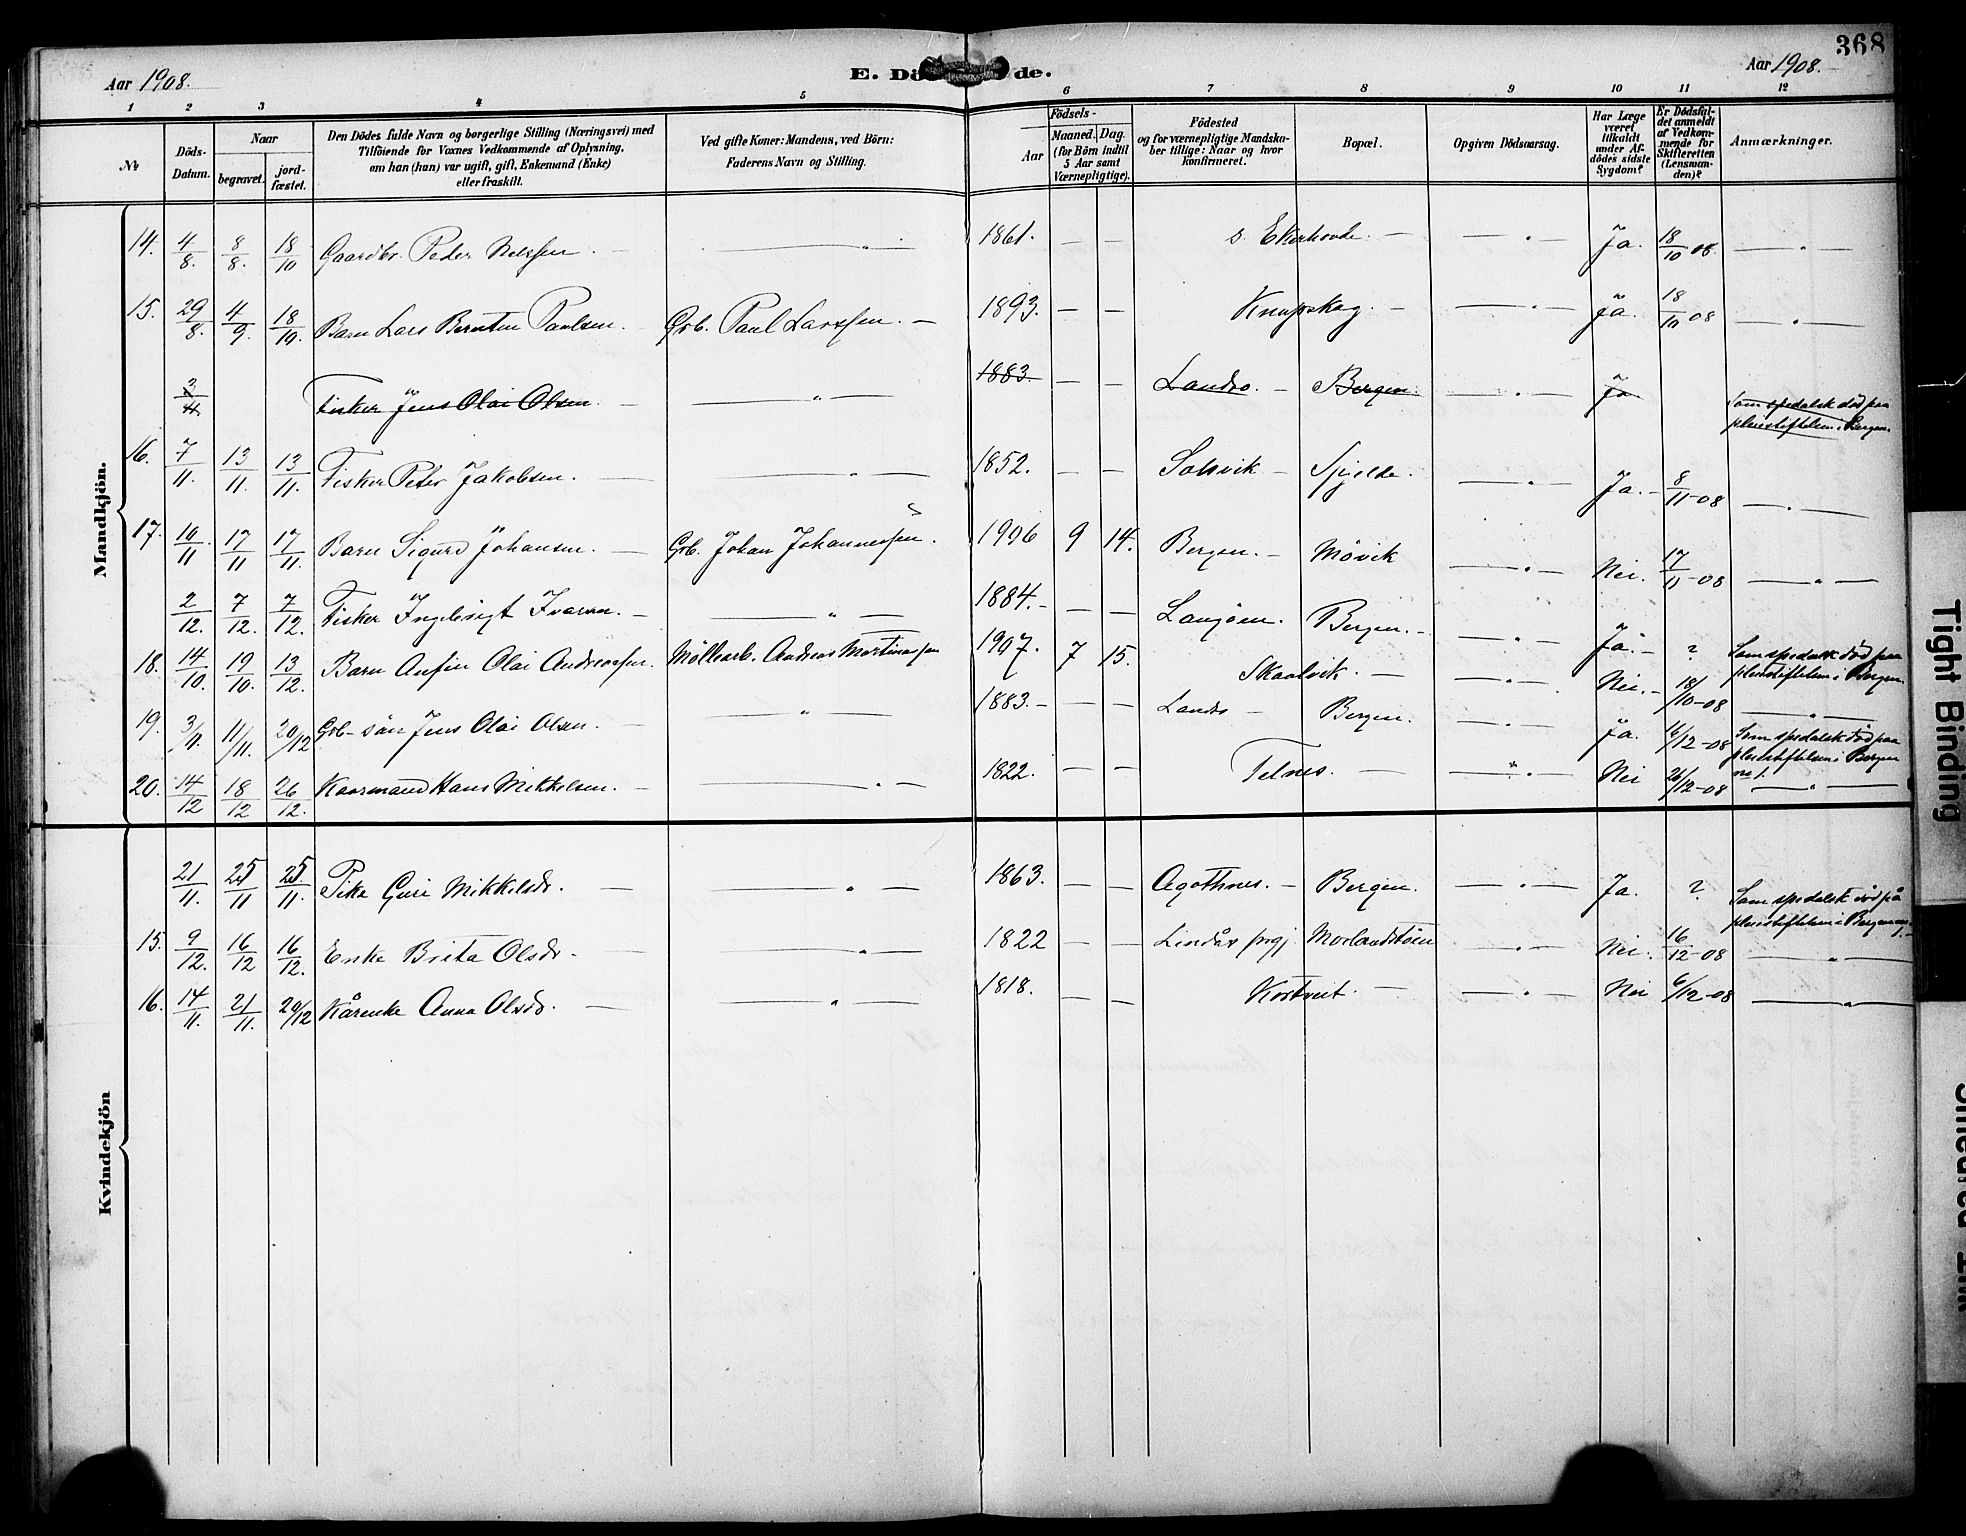 368
Aar 1908.
E. Dö de.
Aar 1908.
1 2 3 4 5 6 7 8 9 10 11 12
№
Döds-Datum.
Naar
begravet.
jord-fæstet.
Den Dödes fulde Navn og borgerlige Stilling (Næringsvei) med
Tilföiende for Voxnes Vedkommende af Oplysning,
om han (hun) var ugift, gift, Enkemand (Enke)
eller fraskilt.
Ved gifte Koner: Mandens, ved Börn:
Faderens Navn og Stilling.
Födsels-
Aar
Maaned. Dag.
(for Börn indtil
5 Aar samt
Værnepligtige).
Födested
og for værnepligtige Mandska-
ber tillige: Naar og hvor
konfirmeret.
Bopæl.
Opgiven Dödsaarsag.
Har Læge
været
tilkaldt
under Af-
dödes sidste
Sygdom?
Er Dödsfal-
det anmeldt
af Vedkom-
mende for
Skifteretten
(Lensman-
den)?
Anmærkninger.
Mandkjön.
14. 4/8. 8/8. 18/10 Gaardbr. Peder Nilssen. — — " — 1861. — — s. Ekerhovde. — — " — Ja. 18/10 08. — " —
15. 29/8. 4/9. 18/10. Barn Lars Berntin Paulsen. Grb. Paul Larssen. — 1893. — — Knapskog. — — " — Ja. 18/10 08 — " —
3/11 Fisker Jens Olai Olsen. — — " — 1883. — — Landro. — Bergen. — " — Ja Som spedalsk död paa
pleiestiftelsen i Bergen.
16. 7/11. 13/11. 13/11. Fisker Peter Jakobsen. — — " — 1852. — — Solsvik — Spjelde. — " — Ja. — 8/11-08 — " —
17. 16/11 17/11 17/11. Barn Sigurd Johansen. — Grb. Johan Johannessen. 1906 9 14. Bergen. — Mövik — " — Nei. 17/11-08 — " —
2/12. 7/12. 7/12. Fisker Ingebrigt Ivarsen. — — " — 1884. — — — Langöen. Bergen. — — " — Ja. — ? Som spedalsk död paa
pleiestiftelsen i Bergen.
18. 14/10. 19/10. 13/12. Barn Anfin Olai Andreassen. Möllearb. Andreas Martinussen 1907. 7 15. Skaalvik. — — " — Nei. — 18/10-08 — " —
19. 3/11. 11/11. 20/12 Grb-sön Jens Olai Olsen. — — " — 1883. — — — Landro — Bergen. — " — Ja. 16/12-08 Som spedalsk död paa
pleiestiftelsen i Bergen
nr 1.
20. 14/12 18/12 26/12. Kaarmand Hans Mikkelsen. — — " — 1822. — — Telnes. — — " — Nei 26/12-08 — " —
Kvindekjön
21/11. 25/11 25/11. Pike Guri Mikkelsdr. — — " — 1863. — — Agothnes. — Bergen. — " — Ja. ? Som spedalsk död på
pleiestiftelsen i Bergen
15. 9/12. 16/12 16/12. Enke Brita Olsdr. — " — 1822 — — Lindås prgj. Morlandstöen — " — Nei. 16/12-08 — " —
16. 14/11. 21/11. 20/12 Kårenke Anna Olsdr. — — " — 1818. — — Kortveit. — — " — Nei 6/12-08 — " —
Tight Binding
Smeared Ink